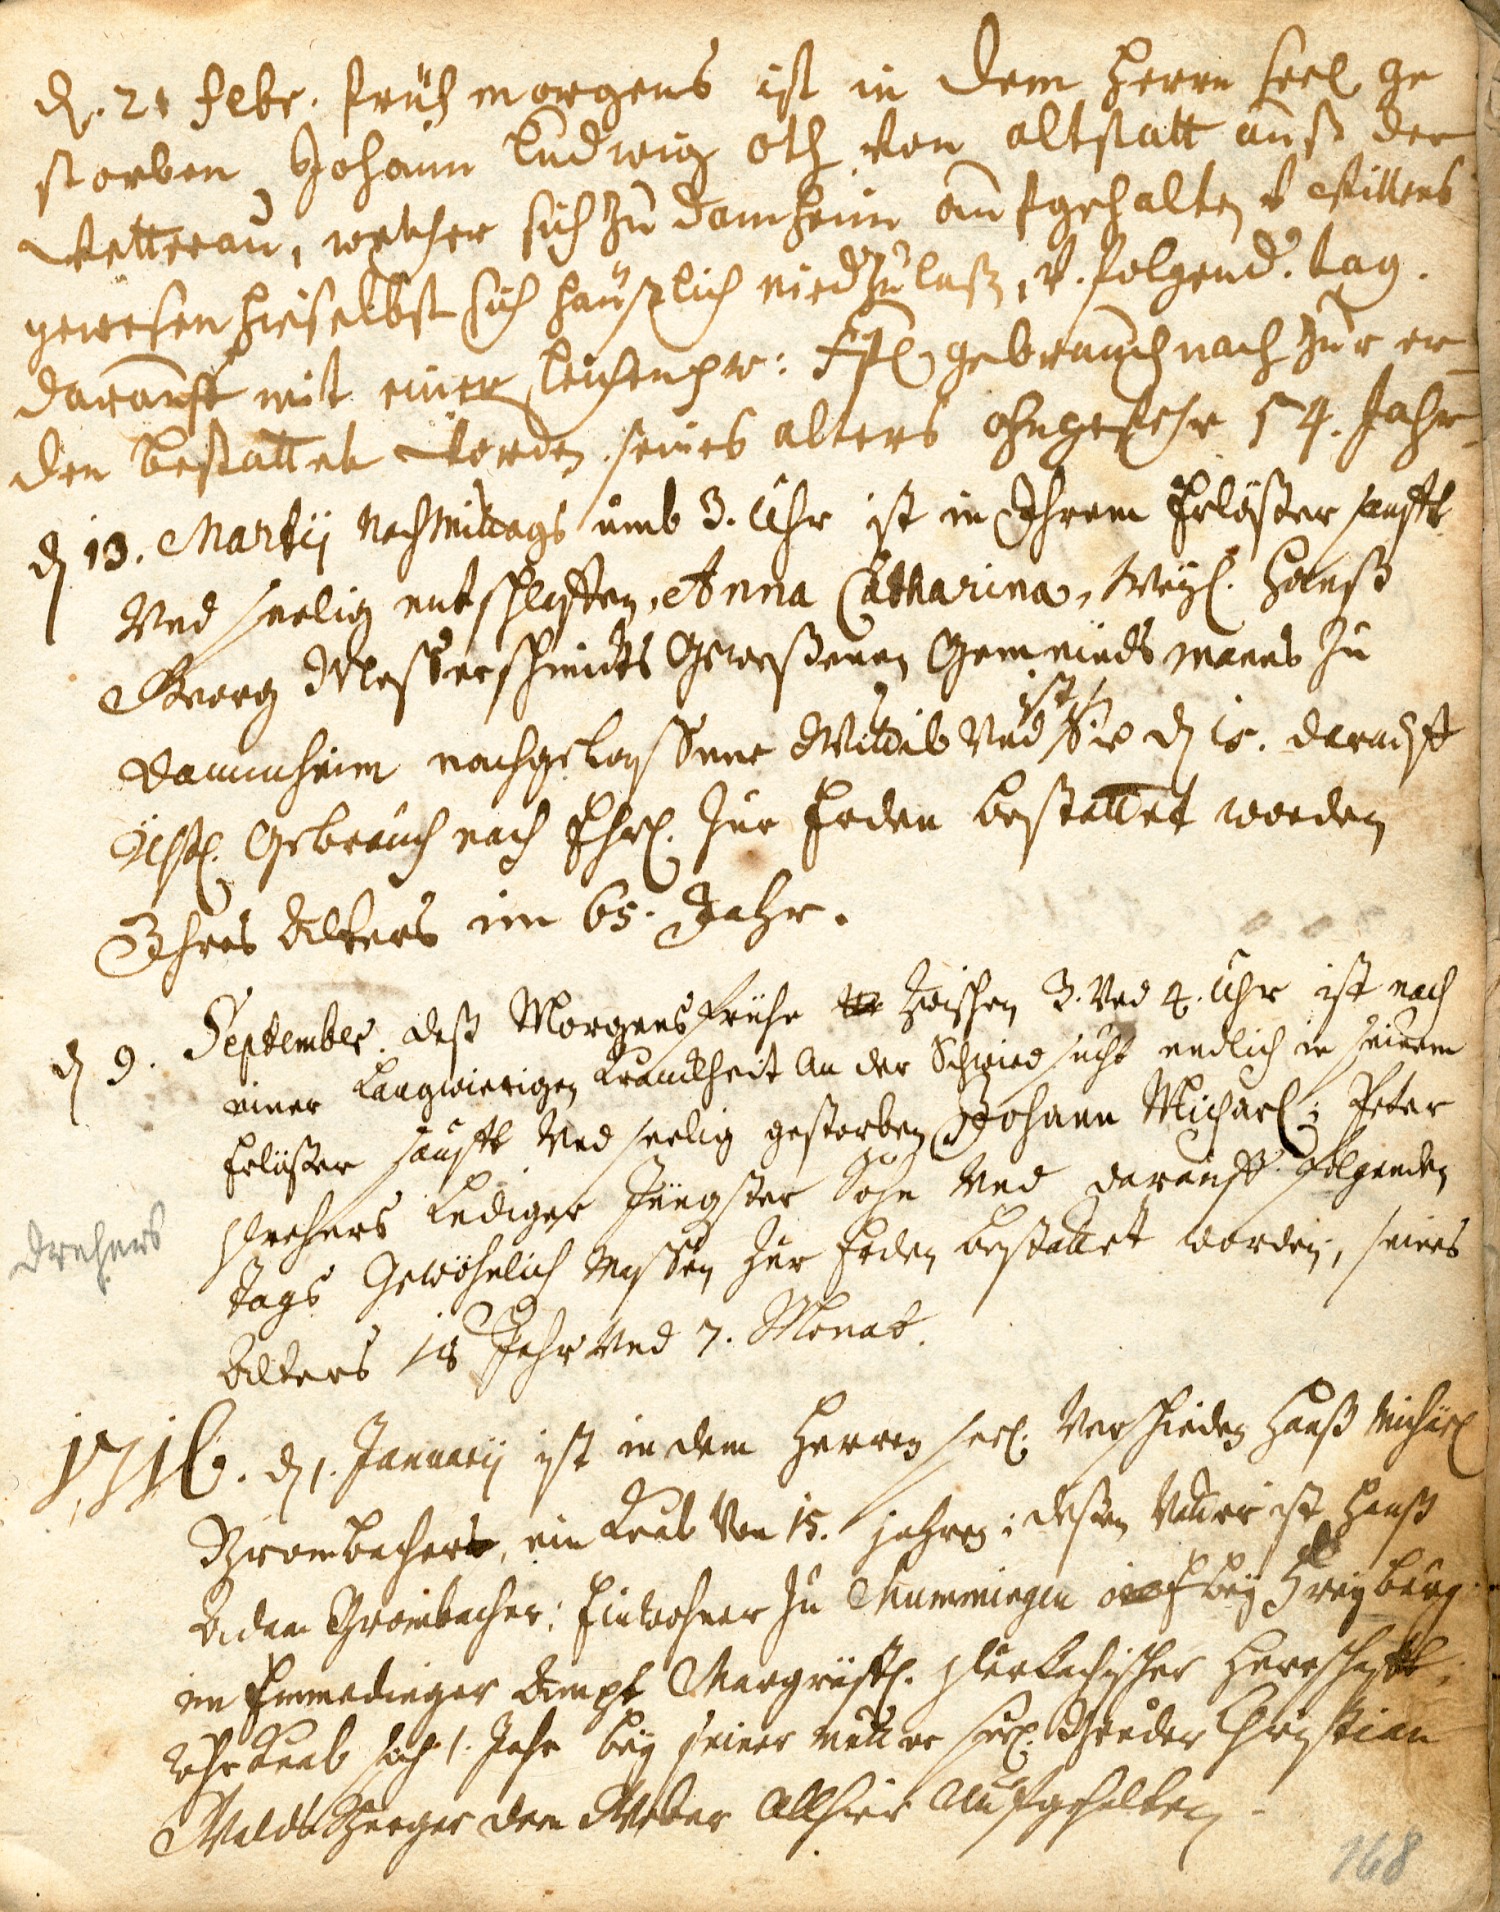 d. 21 Febr. früh morgens ist in dem Herrn seel. ge
storben Johann Ludwig Oth von altstatt auß der
Wetterau, welcher sich zu Damheim auffgehalten v. Willens
gewesen hieselbst sich häußlich niedzulaßen, v. folgend. tag.
darauff mit einer Leichenpr: gebrauch nach zur er-
den bestattet worden seines alters ohngefehr 54. Jahr
d 13. Martij Nachmittags umb 3. Uhr ist in Ihrem Erlößer sanfft
Und seelig entschlaffen, Anna Catharina, Weyl. Hanß
Georg Messerschmidts Geweßenen Gemeindsmanns zu
Dammheim nachgelassene Wittib Und ist Sie d 15. darauff
Gebrauch nach Ehrl. Zur Erden bestattet worden
Ihres Alters im 65. Jahr.
d 9. September. deß Morgens frühe zwischen 3. Und 4. Uhr ist nach
einer Langwierigen Kranckheit An der Schwindsucht endlich in seinem
Erlößer sanfft Und seelig gestorben Johann Michael; Peter
Drehers Lediger Jüngster Sohn Und darauff folgenden
Drehers
Tags Gewöhnlich Massen Zur Erden bestattet worden, seines
Alters 18 Jahr Und 7. Monat.
1716. d 1. Januarij ist in dem Herren seel. Verschieden Hanß Michäel
Grombacher, ein Knab Von 15. jahren; deßen Vatter ist Hanß
Adam Grombacher; Einwohner zu Mummingen bey Freyburg
im Emmedinger Ampt Margräffl. Durlachischer Herrschafft,
Knab sich 1. Jahr bey seiner mutter seel. Bruder Christian
dem Weber Allhier Auffgehalten.
168